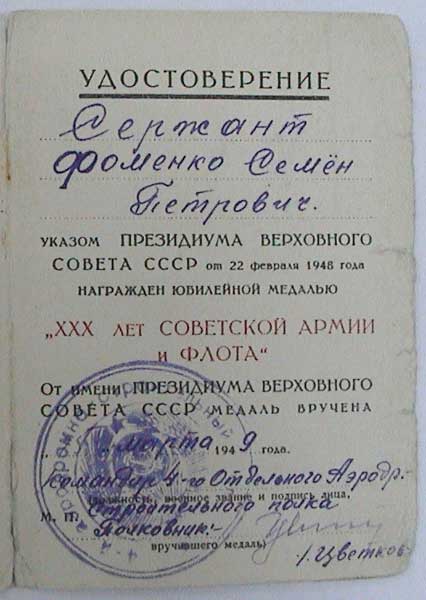 УДОСТОВЕРЕНИЕ
Сержант
Фоменко Семён
Петрович.
УКАЗОМ ПРЕЗИДИУМА ВЕРХОВНОГО
СОВЕТА СССР от 22 февраля 1948 года
НАГРАЖДЕН ЮБИЛЕЙНОЙ МЕДАЛЬЮ
„XXX ЛЕТ СОВЕТСКОЙ АРМИИ
И ФЛОТА“
От имени ПРЕЗИДИУМА ВЕРХОВНОГО
СОВЕТА СССР МЕДАЛЬ ВРУЧЕНА
марта 1949 года.
Командир 4-го Отдельного Аэродр.-
(должность, военное звание и подпись лица,
Строительного полка
М. П.
Полковник:-
вручившего медаль)
/. Цветков